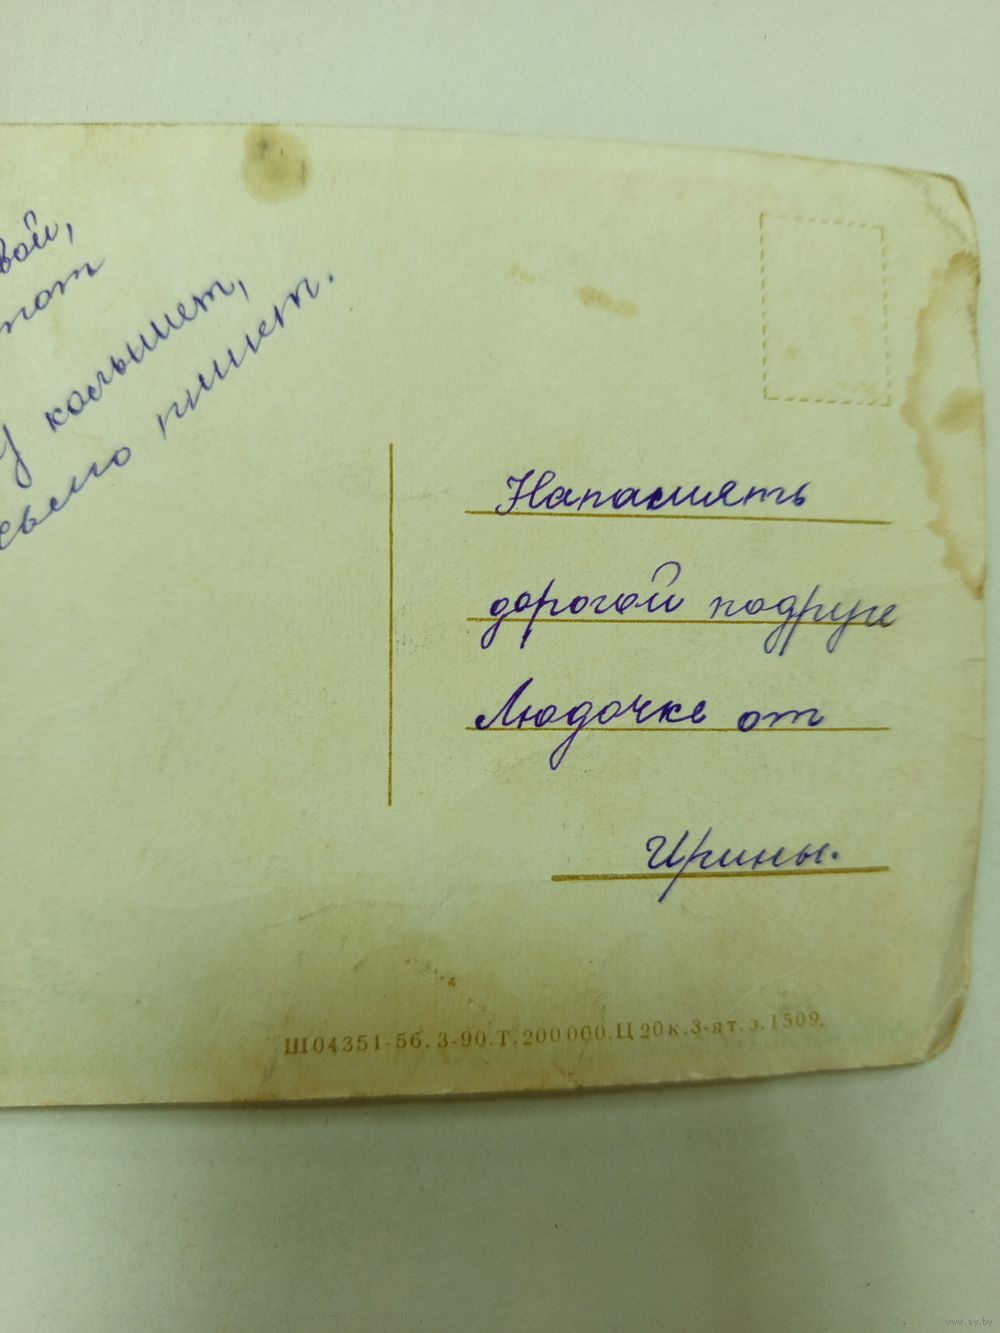 вой,
тот
у колышет,
сьмо пишет.
Напамять
дорогой подруге
Людочке от
Ирины.
Ш04351-56. З-90. Т. 200 000. Ц 20 к. 3-я т. з. 1509.
www.ay.by